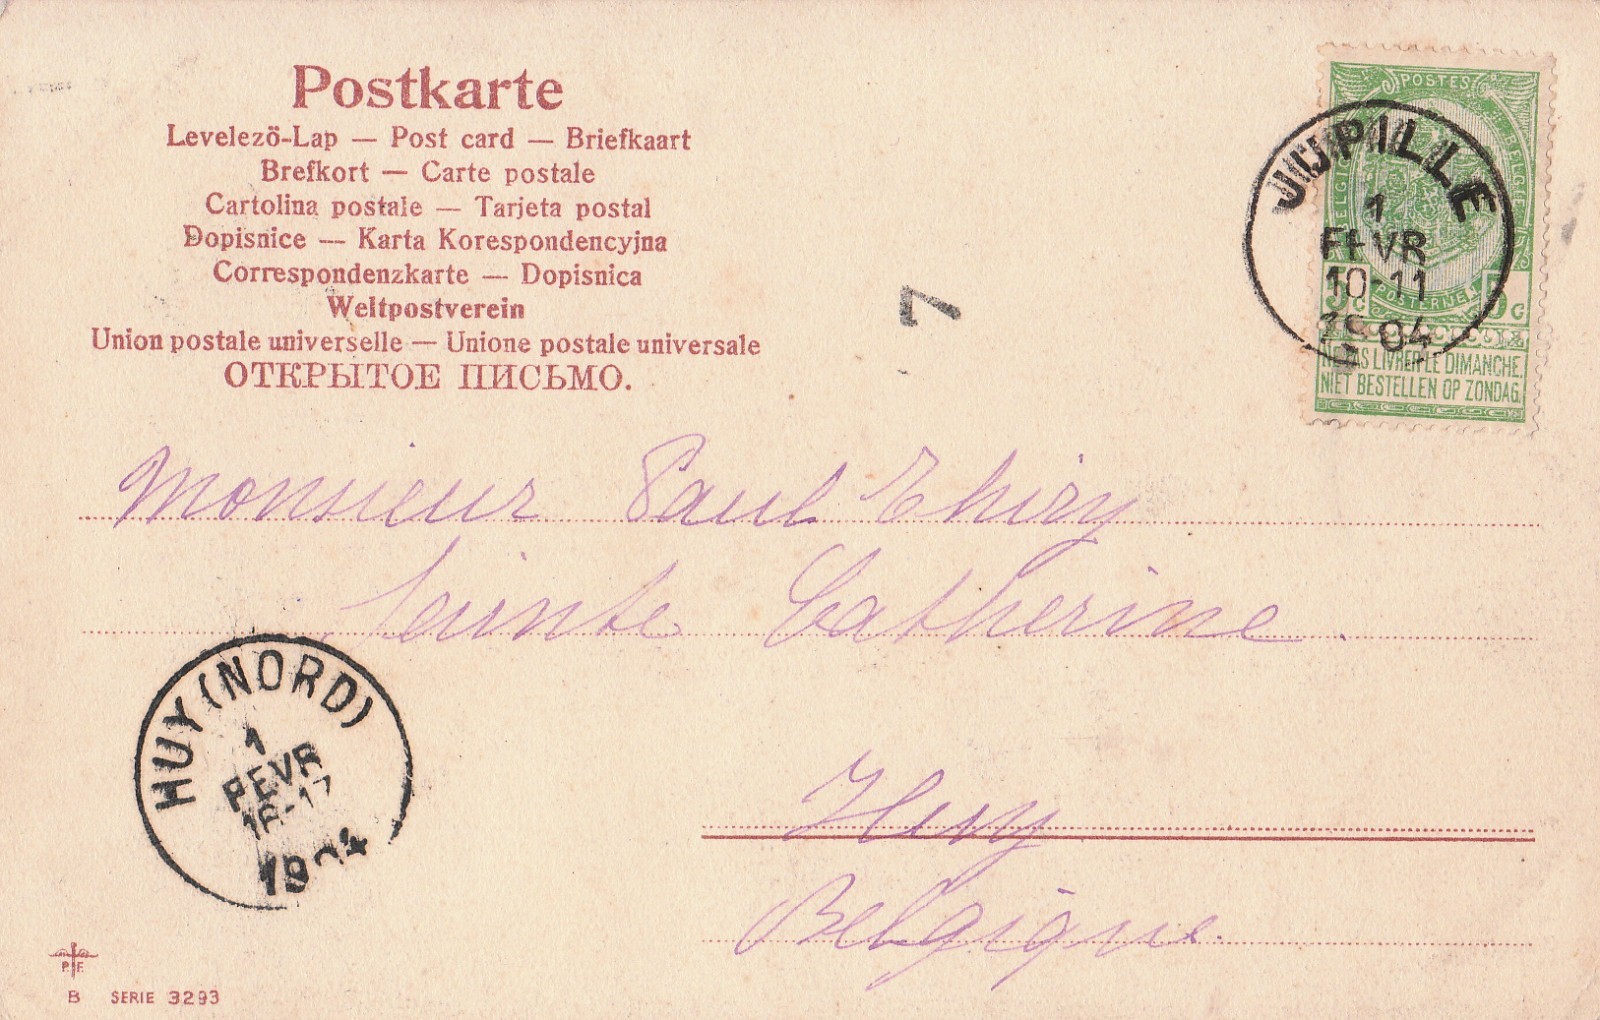 Postkarte
Levelezö-Lap — Post card — Briefkaart
Brefkort — Carte postale
Cartolina postale — Tarjeta postal
Dopisnice — Karta Korespondencyjna
Correspondenzkarte — Dopisnica
Weltpostverein
Union postale universelle — Unione postale universale
ОТКРЫТОЕ ПИСЬМО.
POSTES
BELGIQUE
BELGIE
POSTERIJEN
5c 5c
NE PAS LIVRER LE DIMANCHE.
NIET BESTELLEN OP ZONDAG.
JUPILLE
1
FEVR
10-11
1904
7
Monsieur Paul Thiry
Sainte Catherine.
Huy
Belgique.
HUY (NORD)
1
FEVR
16-17
1904
P. F.
B SERIE 3293